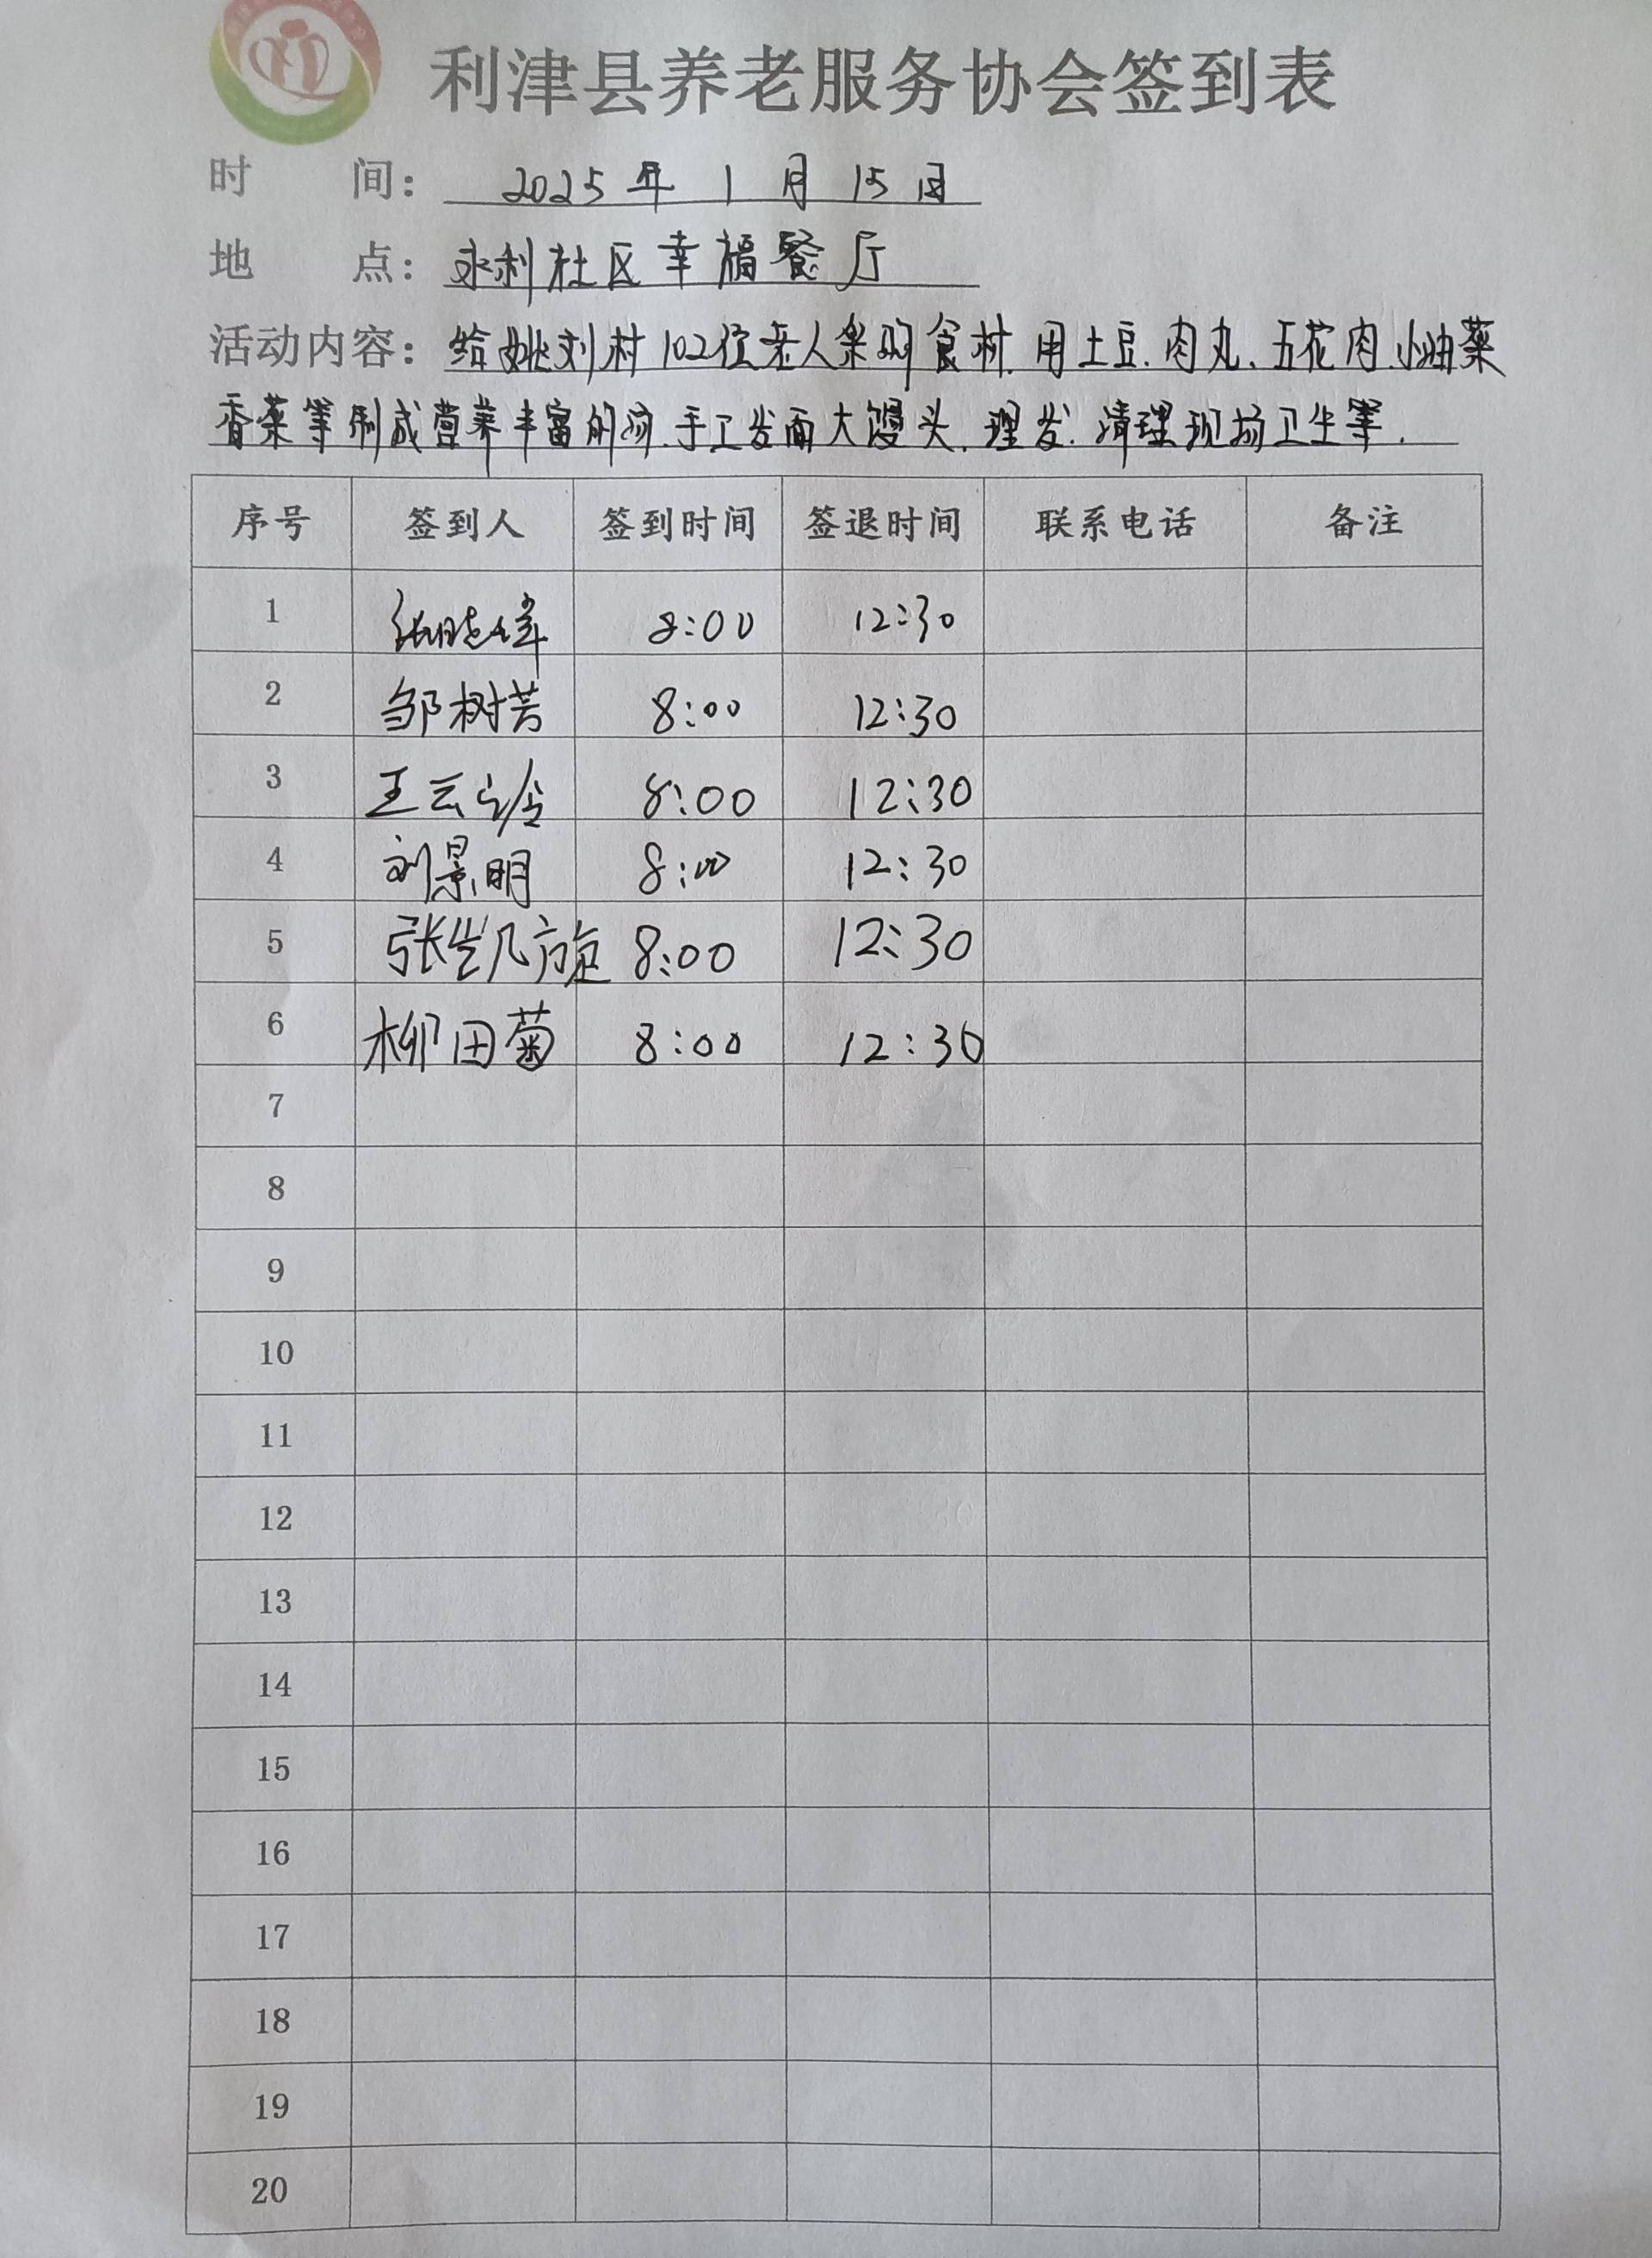 利津县养老服务协会签到表
时 间： 2025年1月15日
地 点： 永利社区幸福餐厅
活动内容： 给姚刘村102位老人采购食材.用土豆.肉丸.五花肉.小油菜
香菜等制成营养丰富的汤.手工发面大馒头.理发.清理现场卫生等.
序号 签到人 签到时间 签退时间 联系电话 备注
1 张晓峰 8:00 12:30
2 邹树芳 8:00 12:30
3 王云 8:00 12:30
4 刘景明 8:00 12:30
5 张 8:00 12:30
6 柳田菊 8:00 12:30
7
8
9
10
11
12
13
14
15
16
17
18
19
20